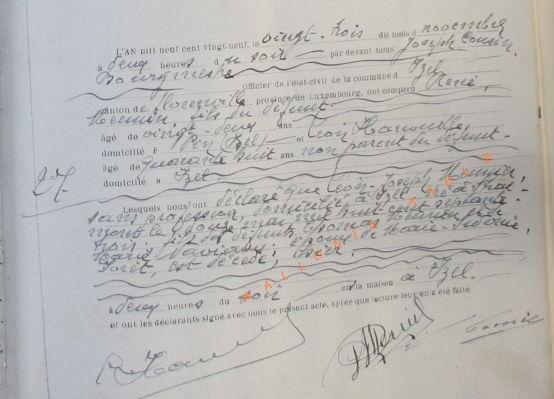 L'AN mil neuf cent vingt-neuf, le vingt-trois du mois d novembre
à deux heures du soir par devant nous Joseph Cousin,
Bourgmestre Officier de l'état-civil de la commune d' Izel
canton de Florenville province de Luxembourg, ont comparu René
Meunier, fils du défunt
âgé de vingt-deux ans
domicilié à Pin Izel; Léon Hanouille,
âgé de quarante huit ans non parent du défunt.
domicilié à Izel
27
Lesquels nous ont déclaré que Léon-Joseph Meunier,
sans profession, domicilié à Izel, né à
mont le douze mai mil huit cent septante-
fils des défunts Thomas Meunier et de
Marie ; époux de Marie-
est décédé, hier
à deux heures du soir en la maison à Izel.
et ont les déclarants signé avec nous le présent acte, après que lecture leur en a été faite.